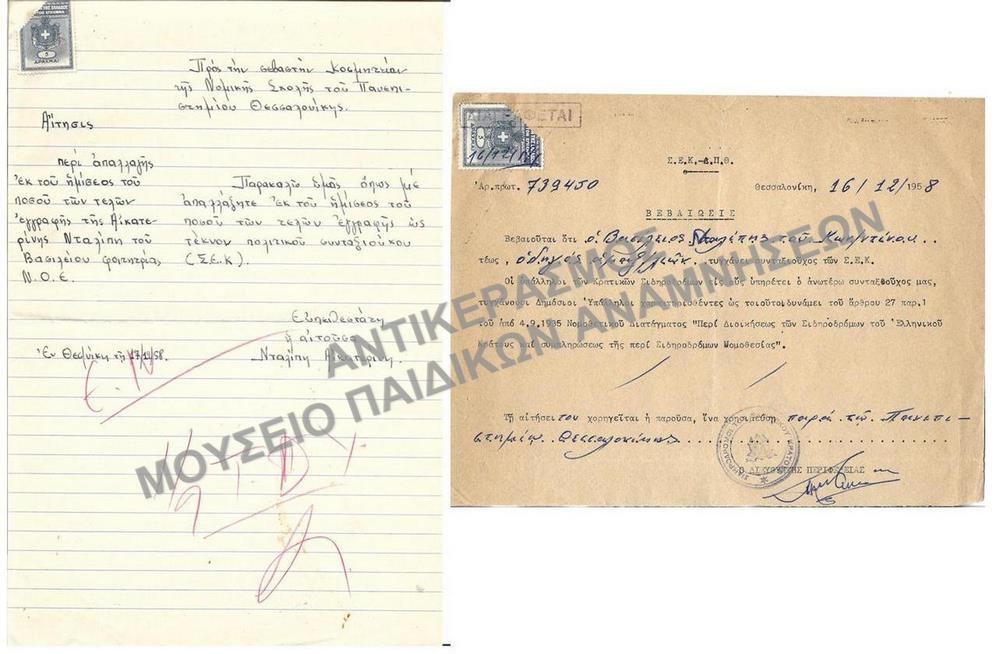 5
ΔΡΑΧΜΑΙ
Πρὸς τὴν σεβαστὴν Κοσμητείαν
τῆς Νομικῆς Σχολῆς τοῦ Πανεπι-
στημίου Θεσσαλονίκης.
Αἴτησις
περὶ ἀπαλλαγῆς
ἐκ τοῦ ἡμίσεος τοῦ
ποσοῦ τῶν τελῶν
ἐγγραφῆς τῆς Αἰκατε-
ρίνης Νταλίπη τοῦ
Βασιλείου φοιτητρίας
Ν.Ο.Ε.
Παρακαλῶ ὑμᾶς ὅπως μὲ
ἀπαλλάξητε ἐκ τοῦ ἡμίσεος τοῦ
ποσοῦ τῶν τελῶν ἐγγραφῆς ὡς
τέκνον πολιτικοῦ συνταξιούχου
(Σ.Ε.Κ).
Εὐπειθεστάτη
ἡ αἰτοῦσα
Νταλίπη Αἰκατερίνη.
Ἐν Θεσ/νίκη τῇ
ΑΝΤΙΚΕΡΑΣΜΟΣ
ΜΟΥΣΕΙΟ ΠΑΙΔΙΚΩΝ ΑΝΑΜΝΗΣΕΩΝ
16/12/
Σ.Ε.Κ.-Δ.Π.Θ.
Ἀρ.πρωτ. 739450
Θεσσαλονίκη, 16/12/1958
ΒΕΒΑΙΩΣΙΣ
Βεβαιοῦται ὅτι ὁ Βασίλειος τοῦ
τέως, ὁδηγὸς τυγχάνει συνταξιοῦχος τῶν Σ.Ε.Κ.
Οἱ ὑπάλληλοι τῶν Κρατικῶν Σιδηροδρόμων εἰς οὓς ὑπηρέτει ὁ ἀνωτέρω συνταξιοῦχος μας,
τυγχάνουσι Δημόσιοι Ὑπάλληλοι χαρακτηρισθέντες ὡς τοιοῦτοι δυνάμει τοῦ ἄρθρου 27 παρ.1
τοῦ ἀπό 4.9.1935 Νομοθετικοῦ Διατάγματος "Περί Διοικήσεως τῶν Σιδηροδρόμων τοῦ Ἑλληνικοῦ
Κράτους καί συμπληρώσεως τῆς περί Σιδηροδρόμων Νομοθεσίας".
Τῇ αἰτήσει του χορηγεῖται ἡ παροῦσα, ἵνα χρησιμεύσῃ παρὰ τῷ Πανεπι-
στημίῳ Θεσσαλονίκης
Ο ΔΙΕΥΘΥΝΤΗΣ ΠΕΡΙΦΕΡΕΙΑΣ